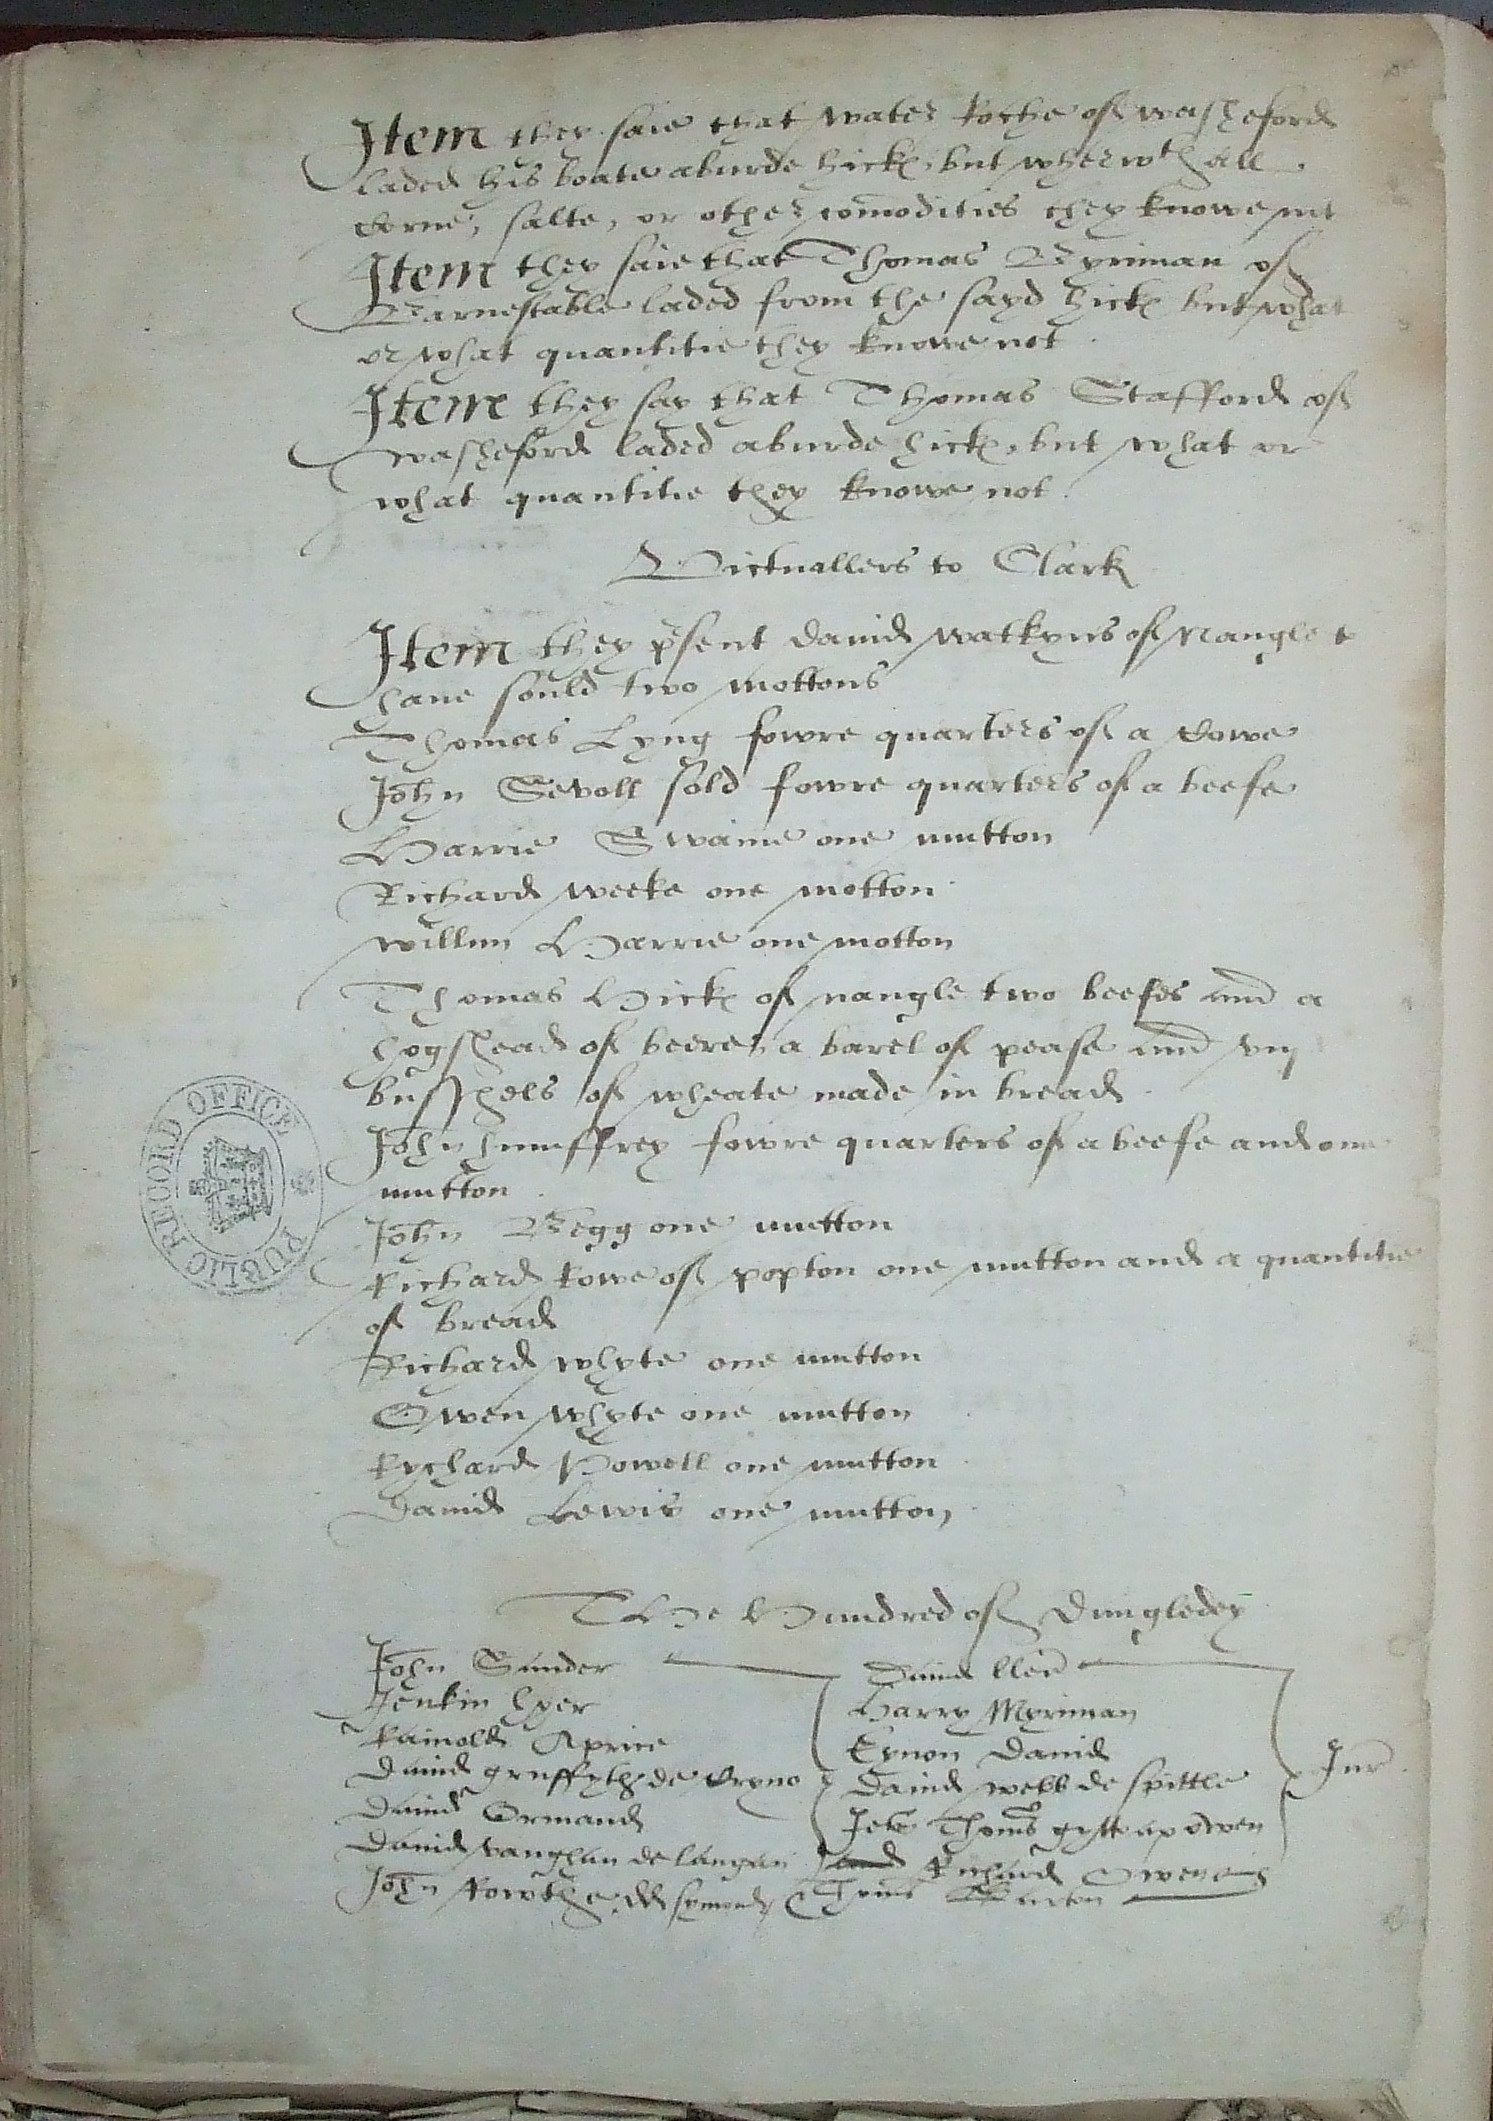 Item they saie that water Roche of washeford
laded his boate aburde hicke, but wherwth all
Corne, salte, or other comodities they knowe not
Item they saie that Thomas Byriman of
Barnestable laded from the sayd hicke but what
or what quantitie they knowe not
Item they say that Thomas Stafford of
washeford laded aburde hicke, but what or
what quantitie they knowe not.
Victuallers to Clark
Item they psent dauid watkyns of Nangle to
haue sould two mottons
Thomas Lyng fowre quarters of a Cowe
John Sevoll sold fowre quarters of a beefe
Harrie Swaine one mutton
Richard weeke one motton
willm Harrie one motton
Thomas Hicke of nangle two beefes and a
hogshead of beere, a barel of pease and viij
busshels of wheate made in bread
John humffrey fowre quarters of a beefe and one
mutton
John Begg one mutton
Richard Rowe of popton one mutton and a quantitie
of bread
Richard whyte one mutton
Owen whyte one mutton
Rychard Powell one mutton
Dauid Lewis one mutton
The Hundred of Dungledey
John Sander
Jenkin hyer
Rainold Aprice
Dauid gruffyth de Cryno
Dauid Ormand
Dauid vaughan de langan
John Rowthe dd Symond
Dauid lleñ
Harry Myriman
Eynon Dauid
Dauid webb de spittle
Jevn Thoms gytto ap owen
Richard Owen
Thms Barton
Jur
PUBLIC RECORD OFFICE